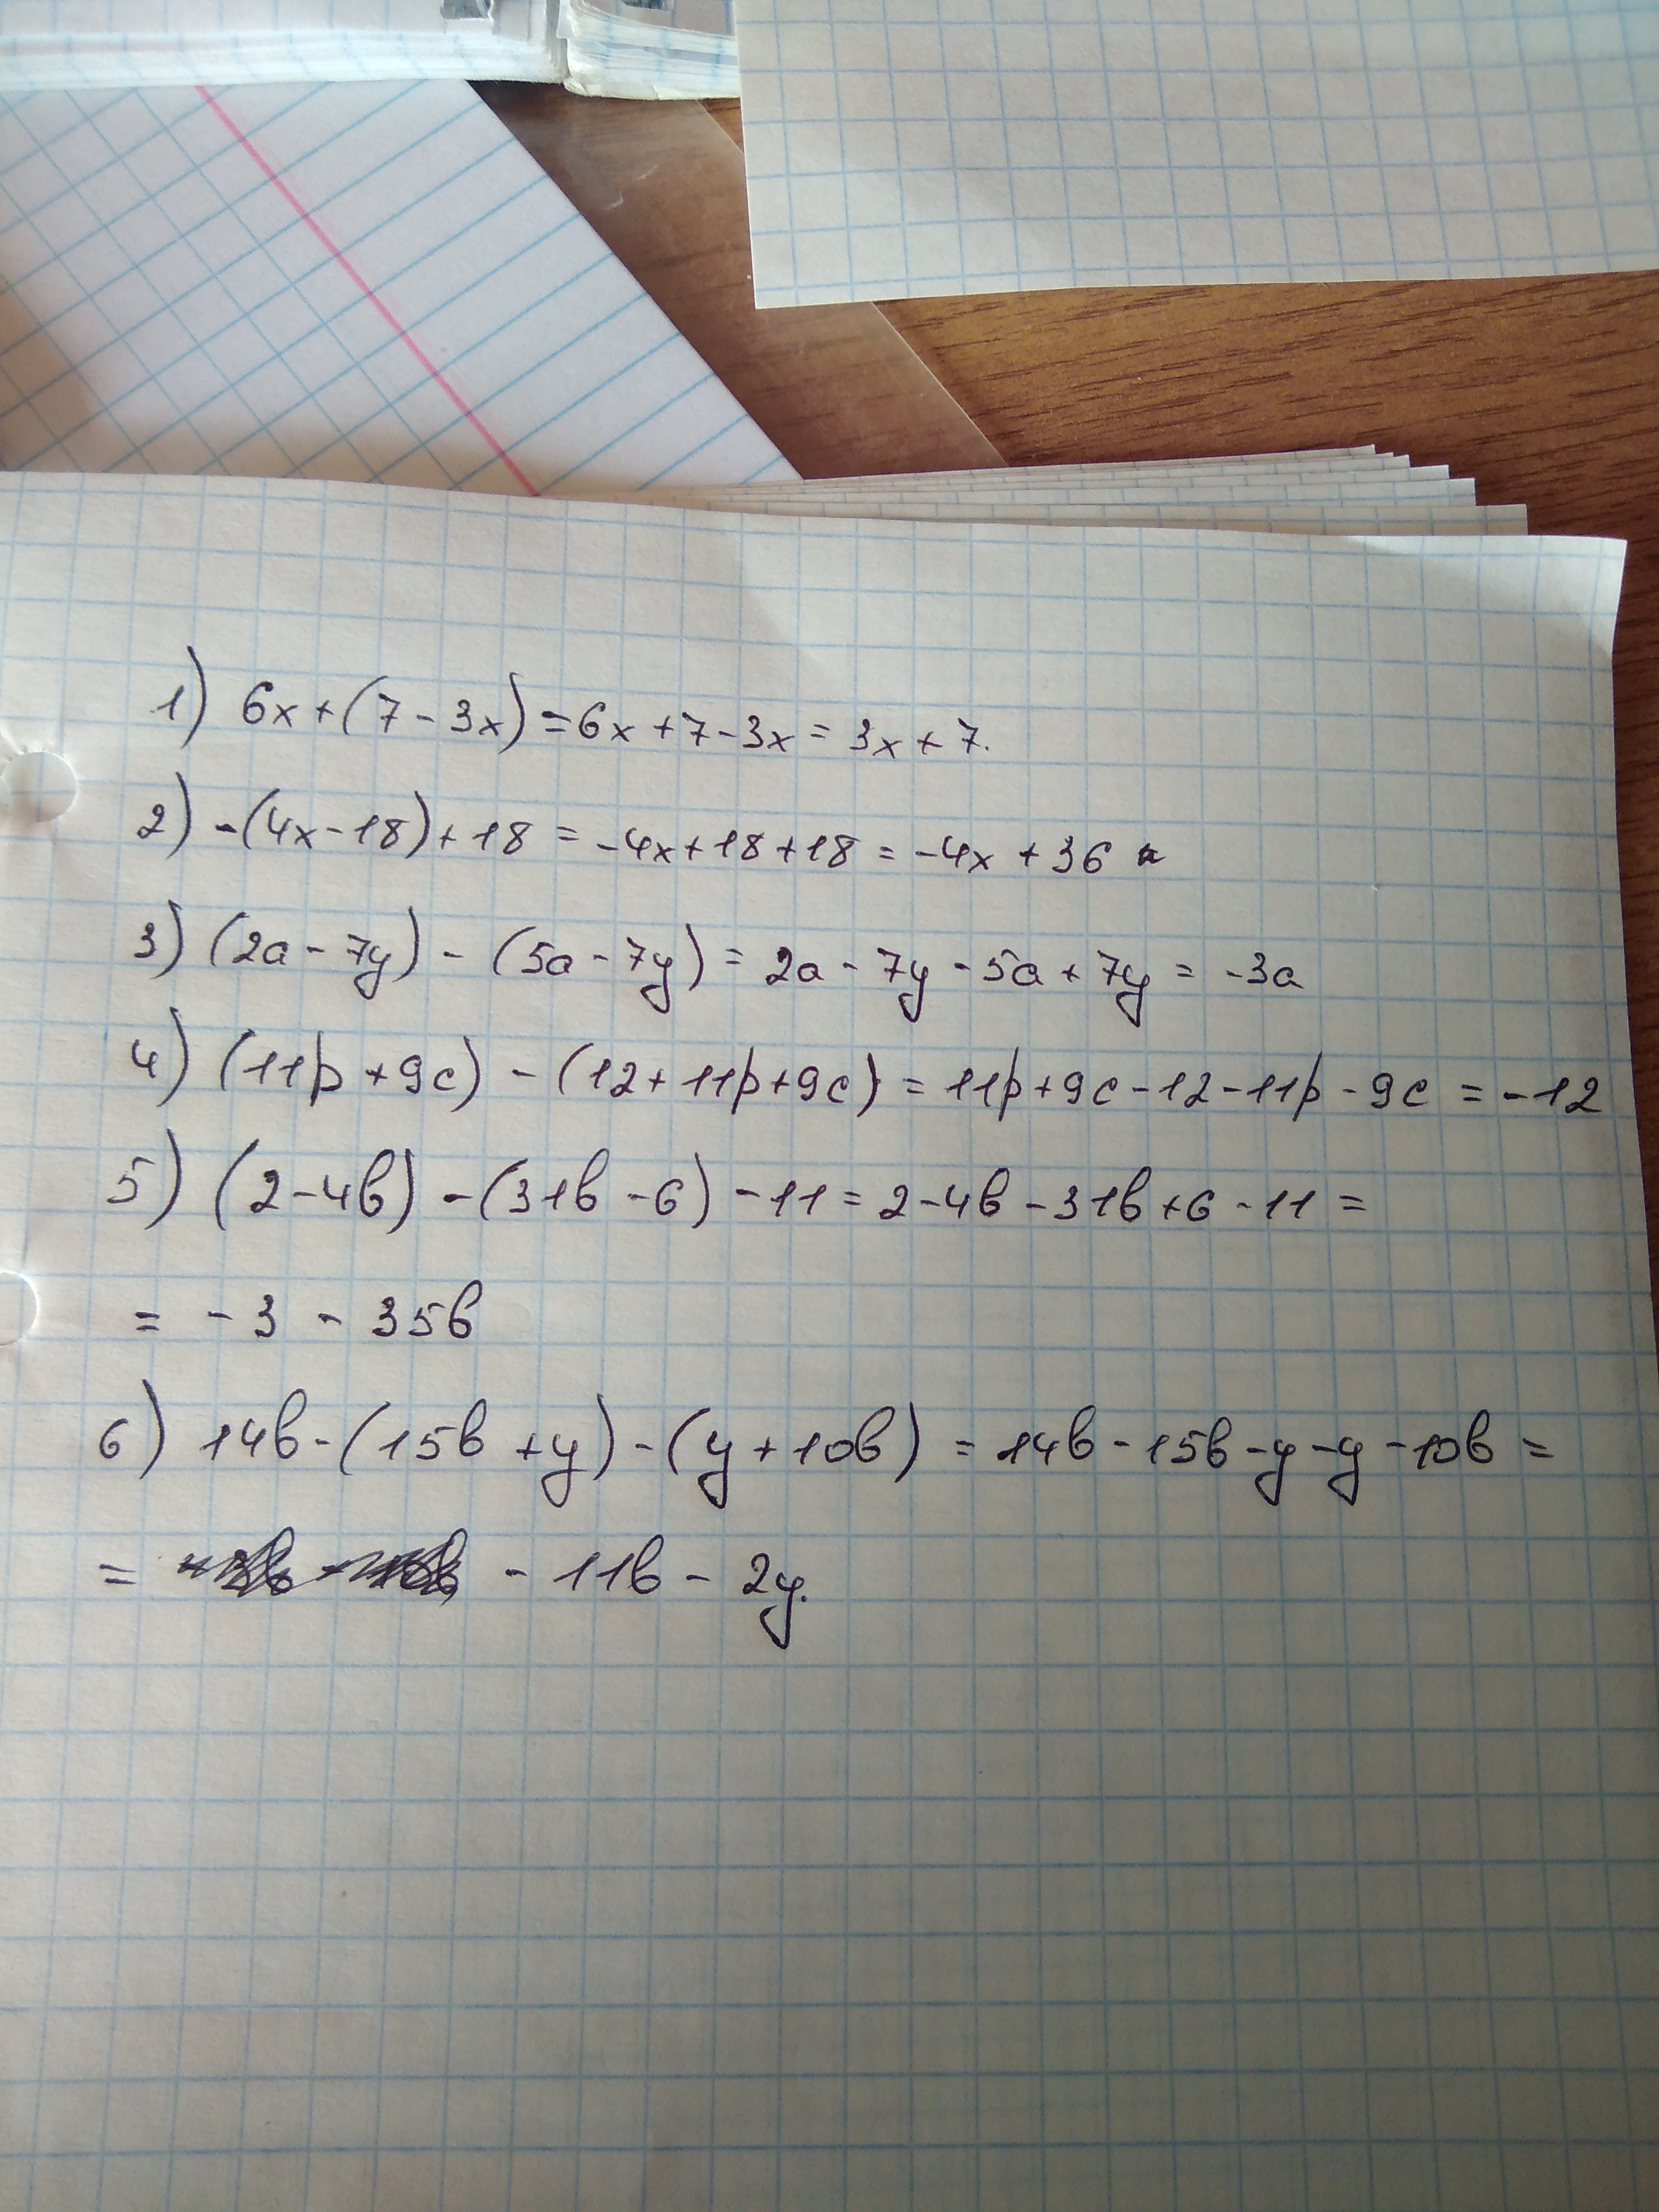 1) 6x+(7-3x)=6x+7-3x=3x+7.
2) -(4x-18)+18=-4x+18+18=-4x+36
3) (2a-7y)-(5a-7y)=2a-7y-5a+7y=-3a
4) (11p+9c)-(12+11p+9c)=11p+9c-12-11p-9c=-12
5) (2-4в)-(31в-6)-11=2-4в-31в+6-11=
=-3-35в
6) 14в-(15в+y)-(y+10в)=14в-15в-y-y-10в=
=-11в-2y.